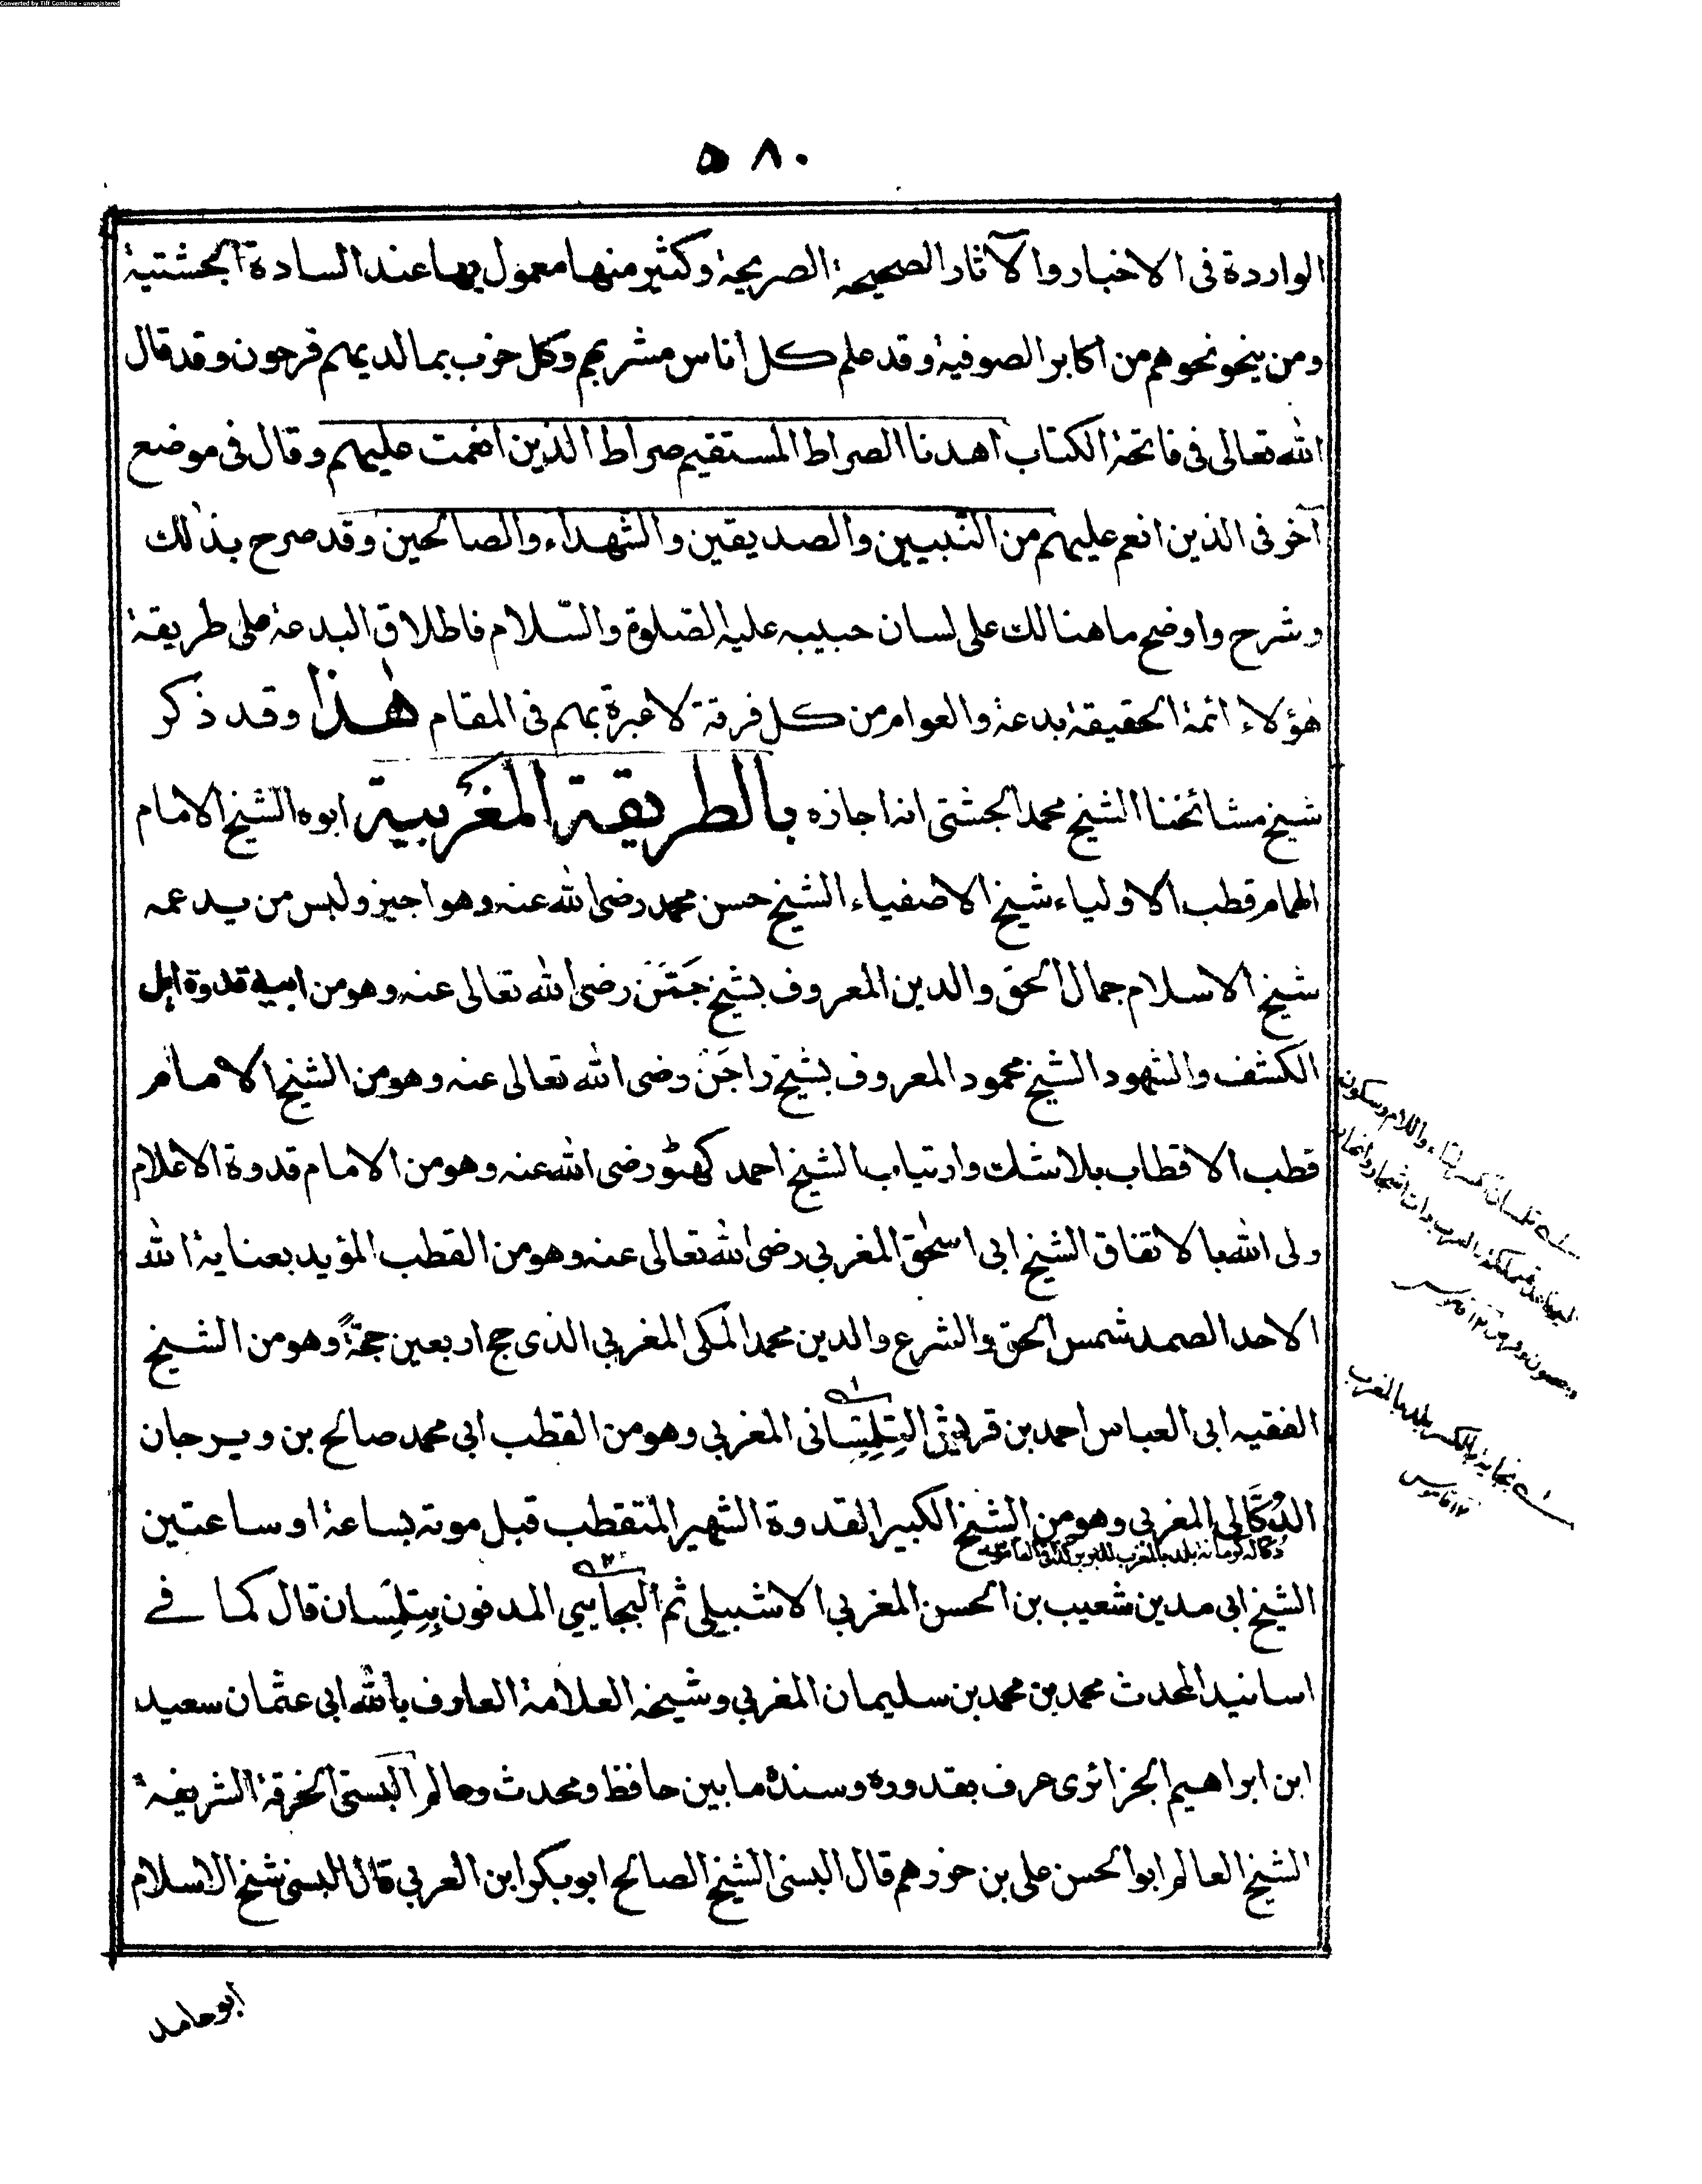 Converted by Tiff Combine - unregistered
٥٨٠
الواردة فى الاخبار والآثار الصحيحة الصريحة وكثير منها معمول بها عند السادة الچشتية
ومن ينحو نحوهم من اكابر الصوفية وقد علم كل اناس مشربهم وكل حزب بما لديهم فرحون وقد قال
الله تعالى فى فاتحة الكتاب اهدنا الصراط المستقيم صراط الذين انعمت عليهم وقال فى موضع
آخر فى الذين انعم عليهم من النّبيين والصديقين والشهداء والصالحين وقد صرح بذلك
وشرح واوضح ما هنالك على لسان حبيبه عليه الصّلوة والسّلام فاطلاق البدعة على طريقة
هؤلاء ائمة الحقيقة بدعة والعوام من كل فرقة لا عبرة بهم فى المقام هٰذا وقد ذكر
شيخ مشائخنا الشيخ محمد الچشتى انه اجازه بالطريقة المغربية ابوه الشيخ الامام
الهمام قطب الاولياء شيخ الاصفياء الشيخ حسن محمد رضى الله عنه وهو اجيز ولبس من يد عمه
شيخ الاسلام جمال الحق والدين المعروف بشيخ جَمَّنْ رضى الله تعالى عنه وهو من ابيه قدوة اهل
الكشف والشهود الشيخ محمود المعروف بشيخ راجَنْ رضى الله تعالى عنه وهو من الشيخ الامام
قطب الاقطاب بلا شك وارتياب الشيخ احمد كهٹو رضى الله عنه وهو من الامام قدوة الاعلام
ولى الله بالاتفاق الشيخ ابى اسحٰق المغربي رضى الله تعالى عنه وهو من القطب المؤيد بعناية الله
الاحد الصمد شمس الحق والشرع والدين محمد المكى المغربي الذى حج اربعين حجةً وهو من الشيخ
الفقيه ابى العباس احمد بن قريش التِلِمْسَانى المغربي وهو من القطب ابى محمد صالح بن ويرجان
الدُكَّالى المغربي وهو من الشيخ الكبير القدوة الشهير المتقطب قبل موته بساعة او ساعتين
دكالة كرمانة بلد بالمغرب للبربر كذا فى القاموس
الشيخ ابى مدين شعيب بن الحسن المغربي الاشبيلى ثم البجاييى المدفون بِتِلِمْسَان قال كما فے
اسانيد المحدث محمد بن محمد بن سليمان المغربي وشيخه العلامة العارف بالله ابى عثمان سعيد
ابن ابراهيم الجزائرى عرف بقدوره وسنده ما بين حافظ ومحدث وعالم البستى الخرقة الشريفة
الشيخ العالم ابو الحسن على بن حرزهم قال البسنى الشيخ الصالح ابو بكر ابن العربي قال البسنى شيخ الاسلام
ابو حامد
تلمسان بكسر التاء واللام وسكون
بجاية بالكسر بلد بالمغرب
١٢ قاموس